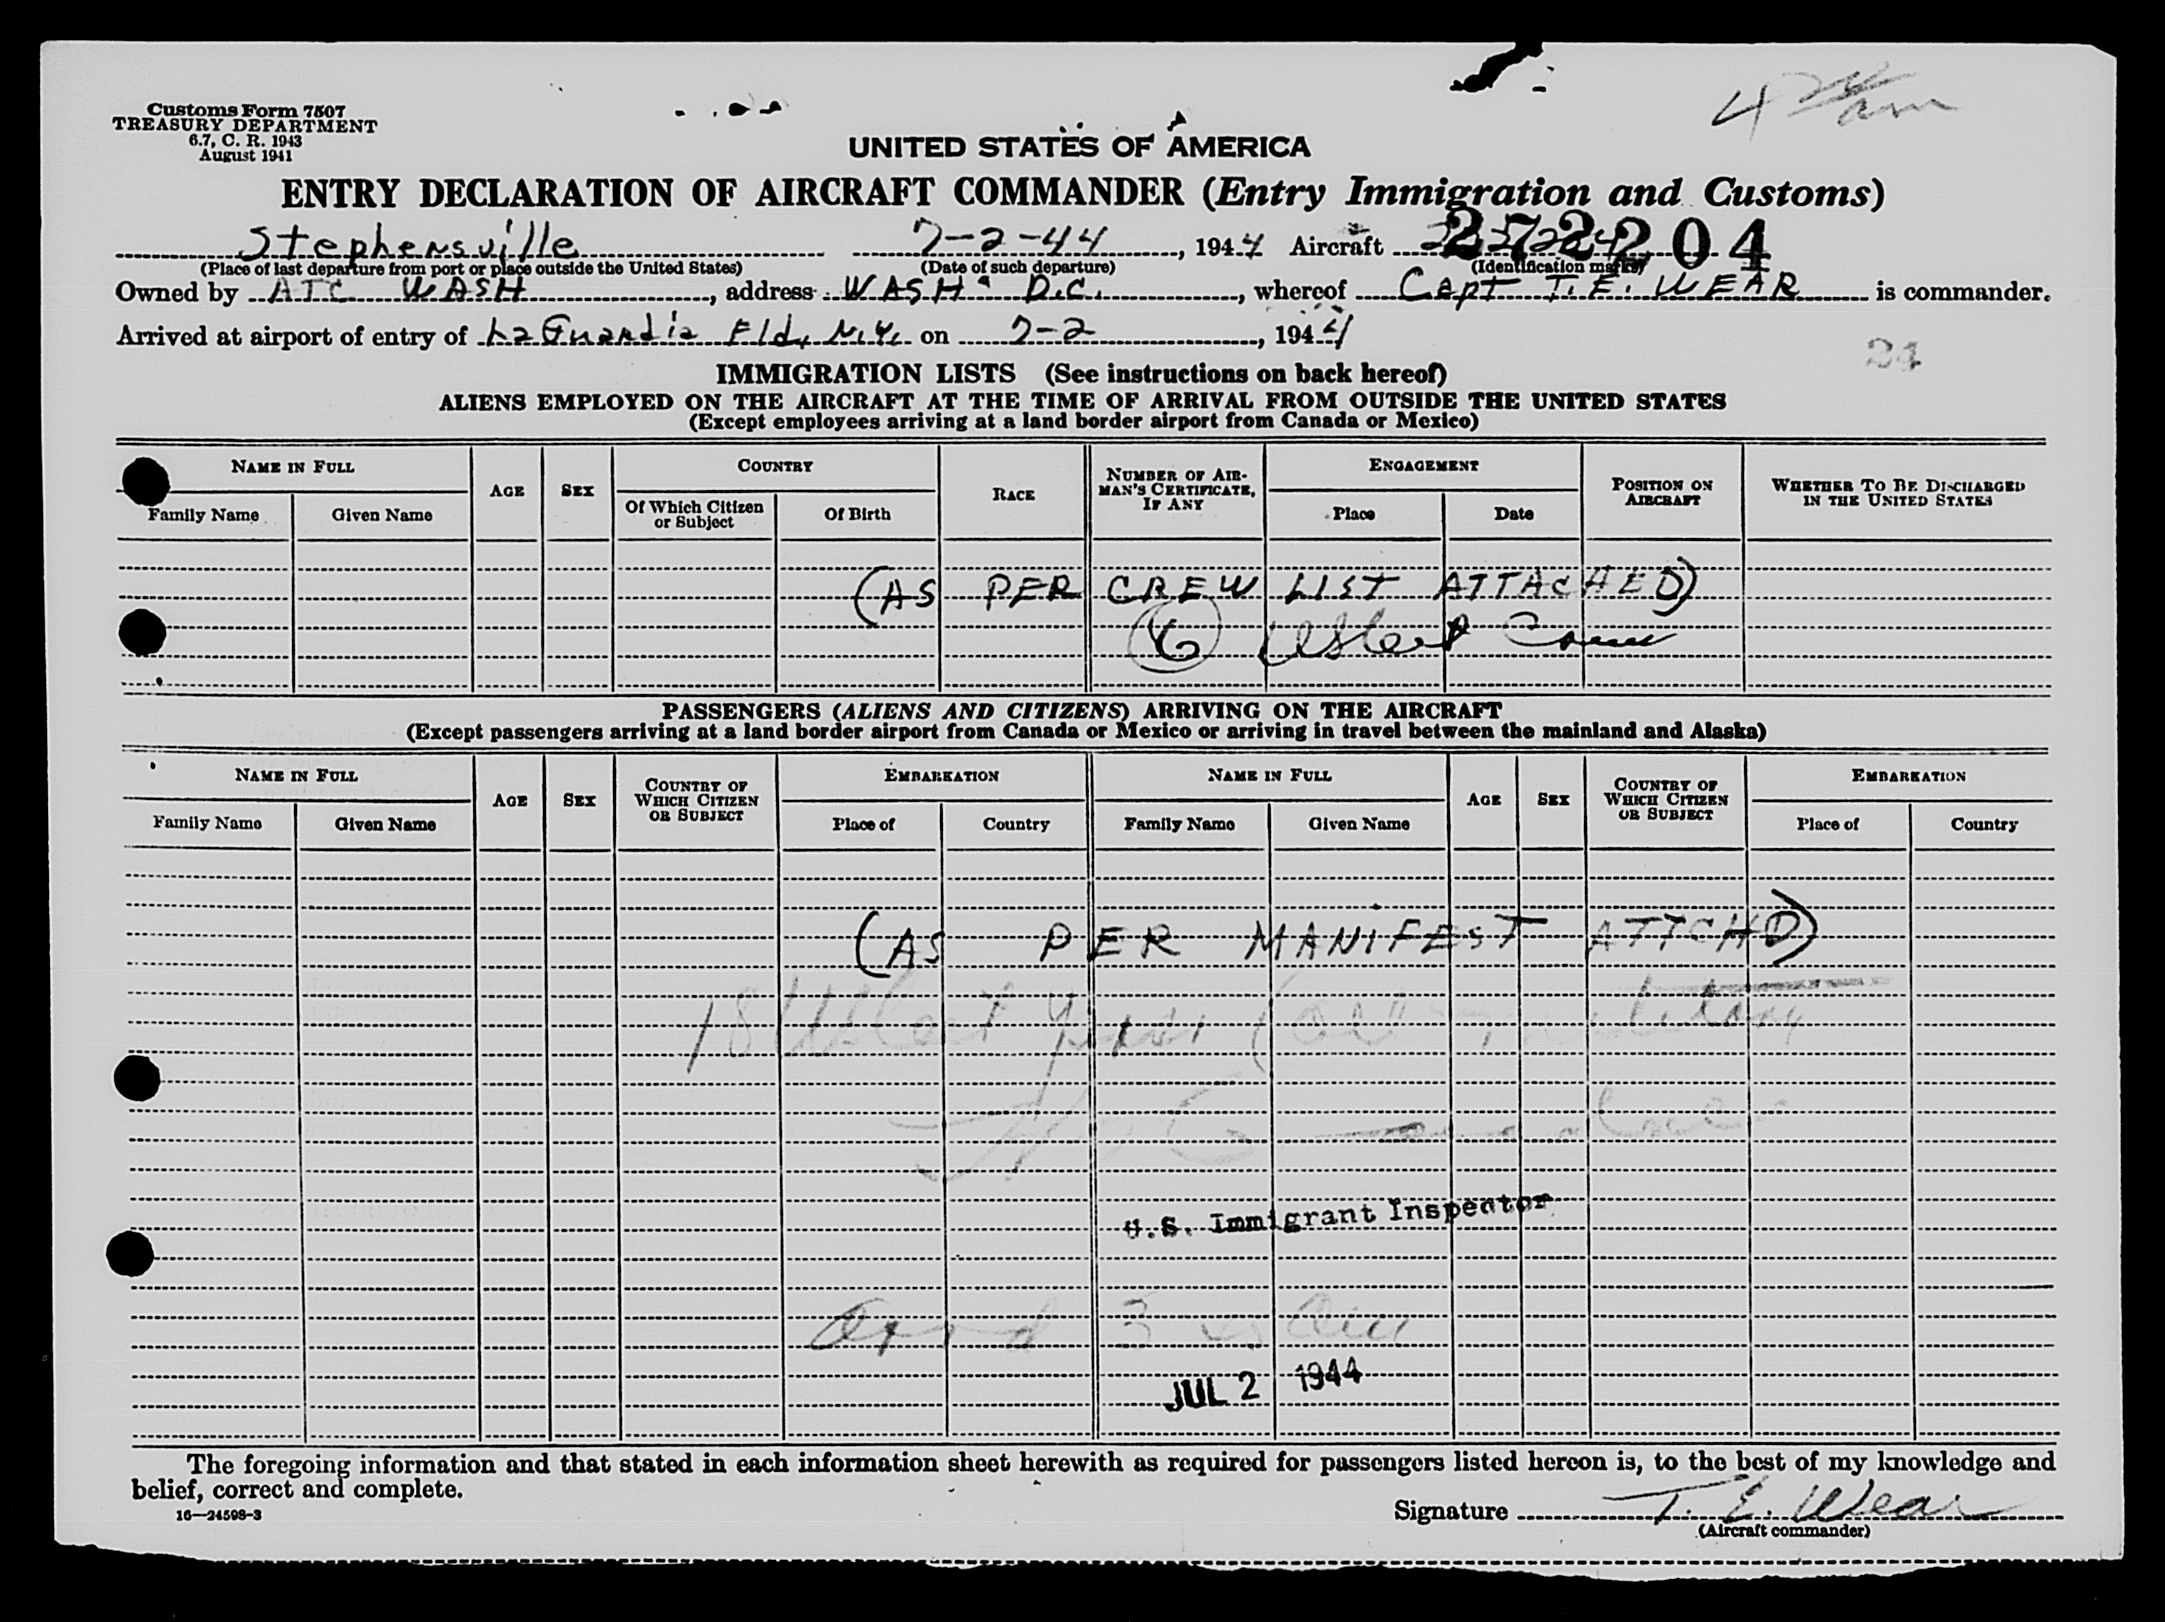 4 am
Customs Form 7507
TREASURY DEPARTMENT
6.7, C. R. 1943
August 1941
UNITED STATES OF AMERICA
ENTRY DECLARATION OF AIRCRAFT COMMANDER (Entry Immigration and Customs)
Stephensville 7-2-44, 1944 Aircraft 272204
(Place of last departure from port or place outside the United States) (Date of such departure) (Identification marks)
Owned by ATC WASH, address WASH. D.C., whereof Capt T. E. WEAR is commander.
Arrived at airport of entry of LaGuardia Fld, N.Y. on 7-2, 1944
24
IMMIGRATION LISTS (See instructions on back hereof)
ALIENS EMPLOYED ON THE AIRCRAFT AT THE TIME OF ARRIVAL FROM OUTSIDE THE UNITED STATES
(Except employees arriving at a land border airport from Canada or Mexico)
NAME IN FULL AGE SEX COUNTRY RACE NUMBER OF AIRMAN'S CERTIFICATE, IF ANY ENGAGEMENT POSITION ON AIRCRAFT WHETHER TO BE DISCHARGED IN THE UNITED STATES
Family Name Given Name Of Which Citizen or Subject Of Birth Place Date
(AS PER CREW LIST ATTACHED)
6 Crew
PASSENGERS (ALIENS AND CITIZENS) ARRIVING ON THE AIRCRAFT
(Except passengers arriving at a land border airport from Canada or Mexico or arriving in travel between the mainland and Alaska)
NAME IN FULL AGE SEX COUNTRY OF WHICH CITIZEN OR SUBJECT EMBARKATION NAME IN FULL AGE SEX COUNTRY OF WHICH CITIZEN OR SUBJECT EMBARKATION
Family Name Given Name Place of Country Family Name Given Name Place of Country
(AS PER MANIFEST ATTCHD)
18
U.S. Immigrant Inspector
JUL 2 1944
The foregoing information and that stated in each information sheet herewith as required for passengers listed hereon is, to the best of my knowledge and
belief, correct and complete.
16—24598-3
Signature T. E. Wear
(Aircraft commander)